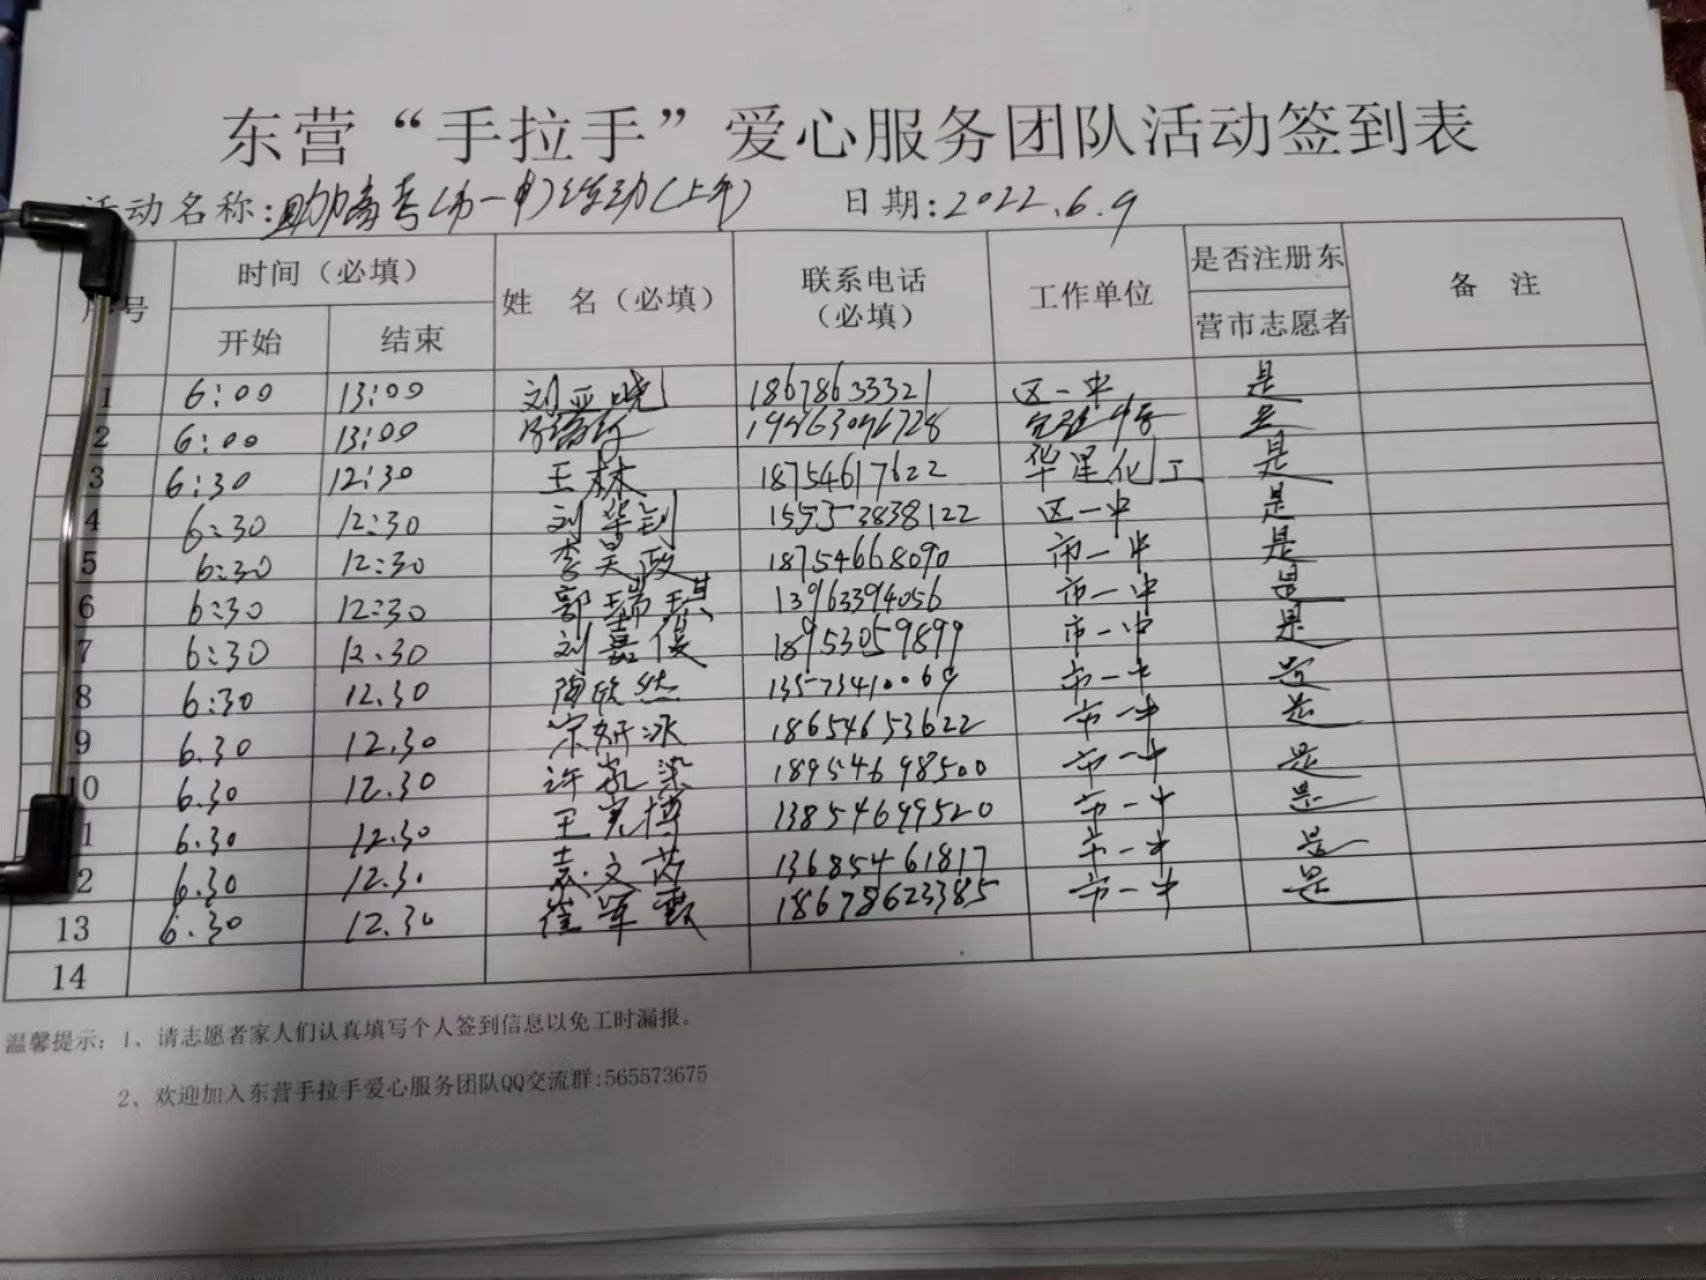 东营“手拉手”爱心服务团队活动签到表
活动名称:助高考(市一中)活动(上午) 日期:2022.6.9
序号 时间（必填） 姓 名（必填） 联系电话（必填） 工作单位 是否注册东营市志愿者 备 注
开始 结束
1 6:00 13:00 刘亚晓 18678633321 区一中 是
2 6:00 13:00 是
3 6:30 12:30 王林 18754617622 华星化工 是
4 6:30 12:30 刘华钊 15553838122 区一中 是
5 6:30 12:30 李昊政 18754668090 市一中 是
6 6:30 12:30 郭瑞琪 13963394056 市一中 是
7 6:30 12.30 刘嘉俊 18953059899 市一中 是
8 6:30 12.30 陶欣然 13573410069 市一中 是
9 6.30 12.30 宋妍冰 18654653622 市一中 是
10 6.30 12.30 许 染 18954698500 市一中 是
1 6.30 12.30 王宪博 13854699520 市一中 是
2 6.30 12.30 袁文芮 13685461817 市一中 是
13 6.30 12.30 崔军 18678623385 市一中 是
14
温馨提示：1、请志愿者家人们认真填写个人签到信息以免工时漏报。
2、欢迎加入东营手拉手爱心服务团队QQ交流群:565573675